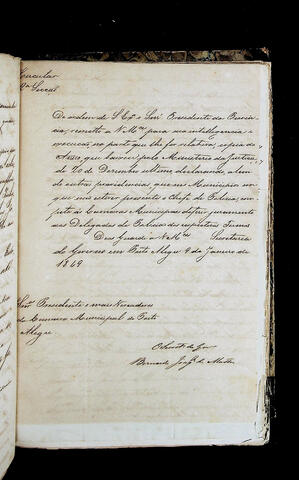 Circular
2ª Seccaõ
De ordem de S. Exª o Senr. Presidente da Provin-
cia, remetto a V. Mces para sua intelligencia
e execuçaõ na parte que lhe for relativa, copia do
Aviso, que baixou pela Ministerio da Justiça
de 20 de Dezembro ultimo declarando, alem
de outras providencias, que no Municipio em
que naõ estiver presente o Chefe de Policia, com-
pete ás Camaras Municipaes deferir juramento
aos Delegados de Policia dos respectivos Termos
Deos Guarde a V. Mces Secretaria
do Governo em Porto Alegre 9 de Janeiro de
1849
Senr. Presidente e mais Vereadores
da Camara Municipal de Porto
Alegre
Bernardo